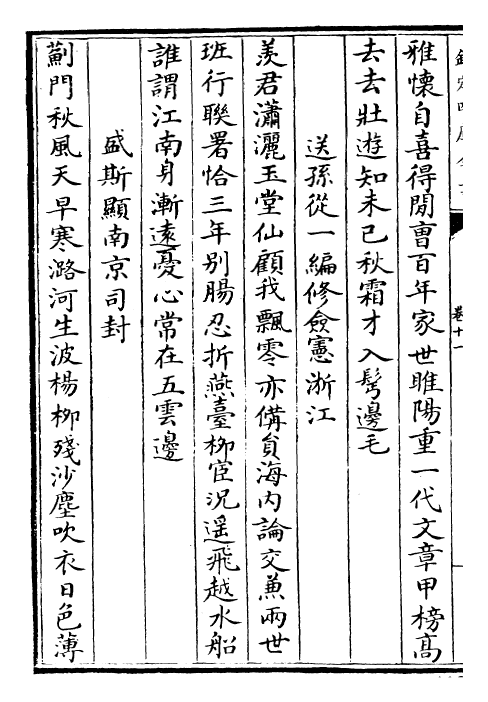 雅懷自喜得閒曺百年家世睢陽重一代文章甲榜髙
去去壯遊知未已秋霜才入髩邊毛
送孫從一編修僉憲浙江
羨君瀟灑玉堂仙顧我飄零亦備員海内論交兼兩世
班行聯署恰三年别腸忍折燕臺柳宦况遥飛越水船
誰謂江南身漸逺憂心常在五雲邊
盛斯顯南京司封
薊門秋風天早寒潞河生波楊柳殘沙塵吹衣日色薄
卷十一